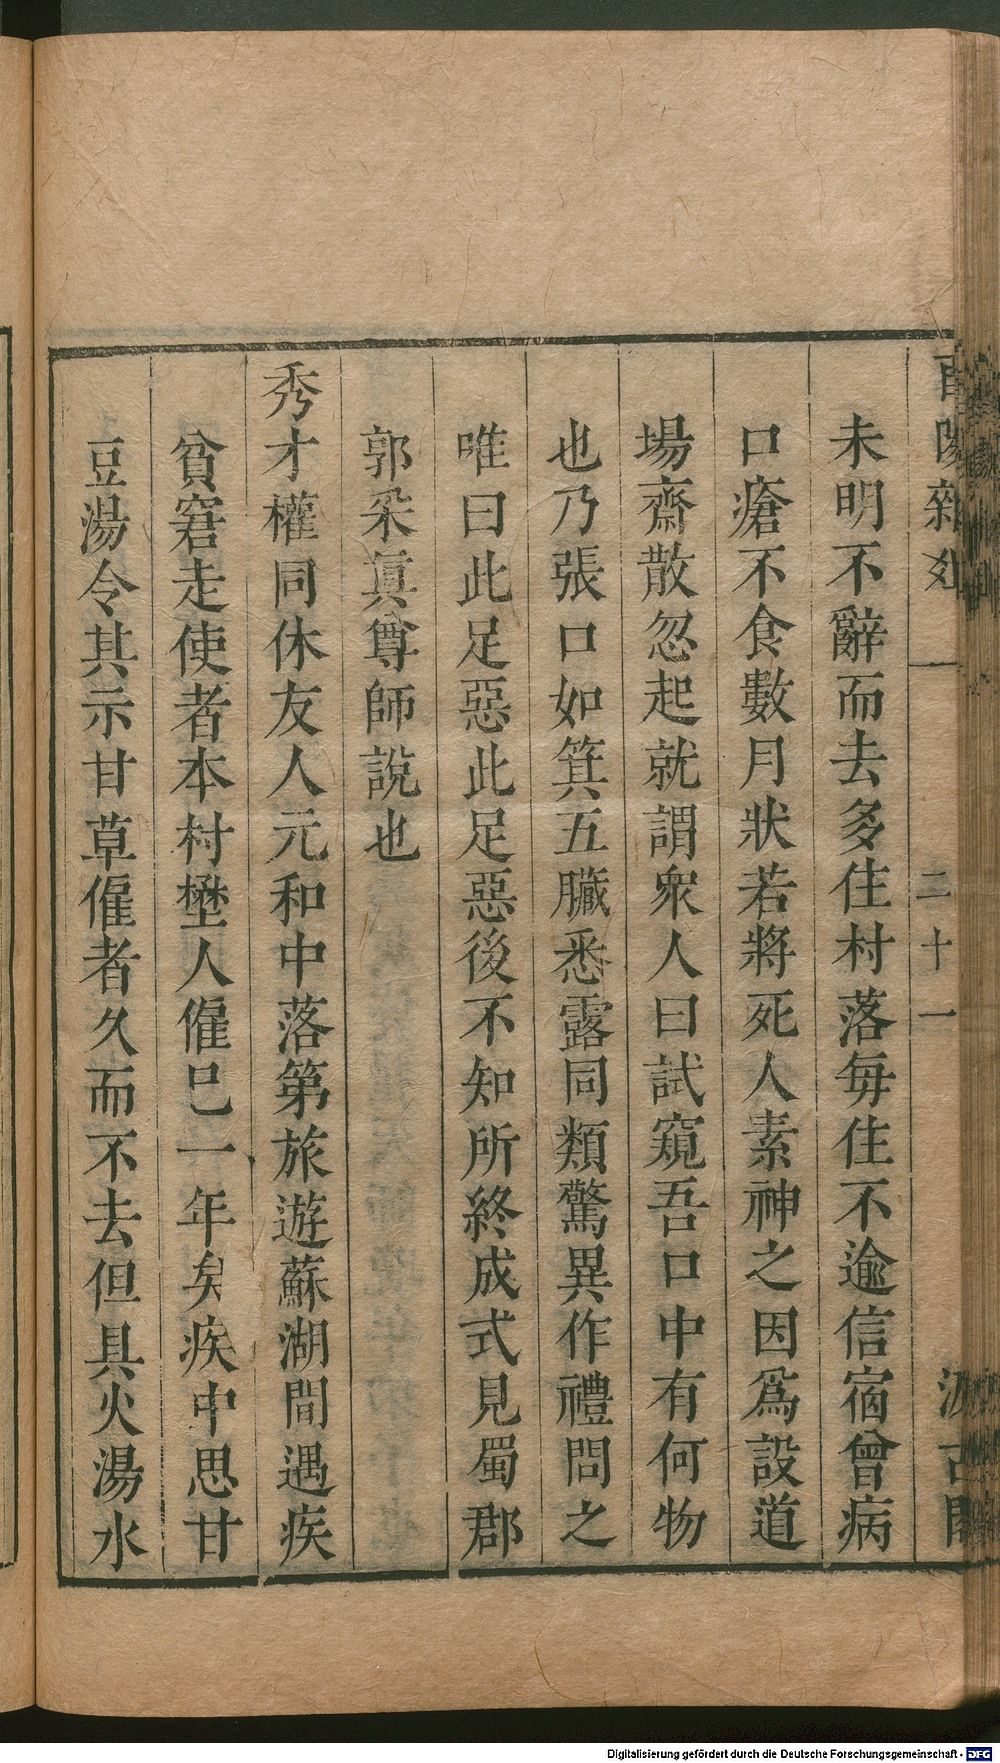 酉陽雜俎
二十一
汲古閣
未明不辭而去多住村落毎住不逾信宿曾病
口瘡不食數月狀若將死人素神之因爲設道
場齋散忽起就謂衆人曰試窺吾口中有何物
也乃張口如箕五臟悉露同類驚異作禮問之
唯曰此足惡此足惡後不知所終成式見蜀郡
郭采眞尊師說也
秀才權同休友人元和中落第旅遊蘇湖間遇疾
貧窘走使者本村墅人僱已一年矣疾中思甘
豆湯令其示甘草僱者久而不去但具火湯水
Digitalisierung gefördert durch die Deutsche Forschungsgemeinschaft - DFG